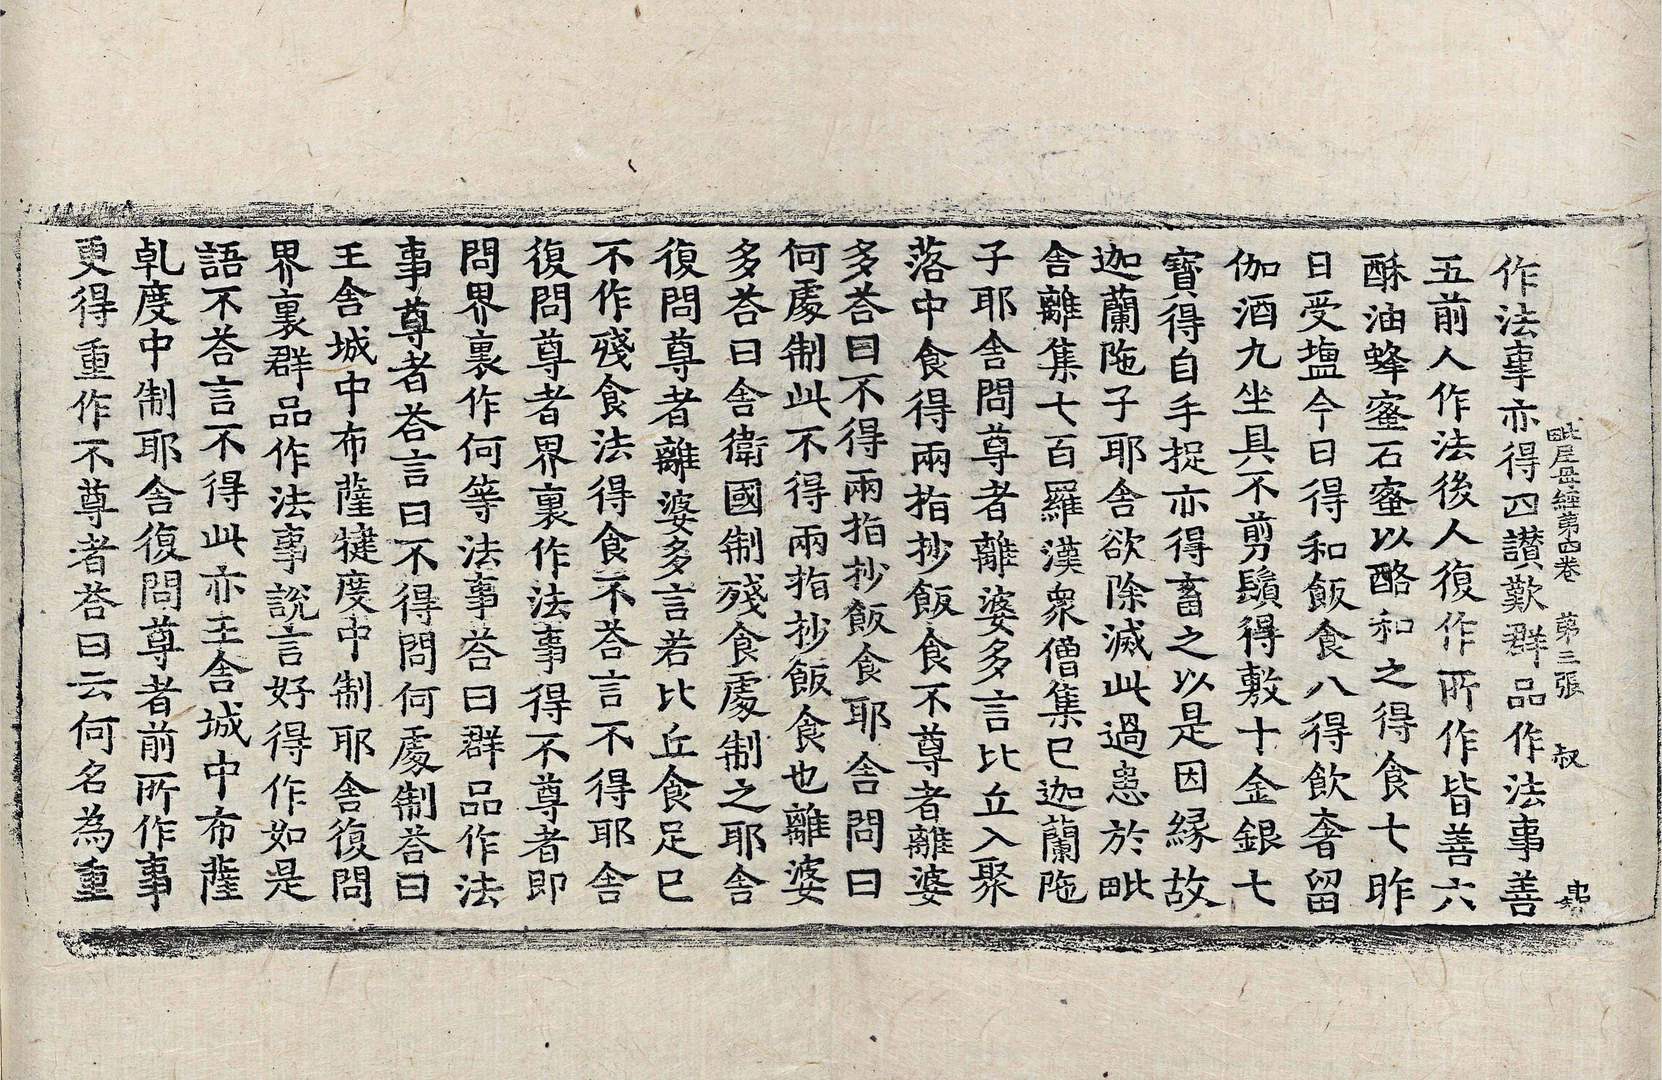 毗尼母經第四卷　第三張　叔
作法事亦得四讃歎群品作法事善
五前人作法後人復作所作皆善六
酥油蜂蜜石蜜以酪和之得食七昨
日受塩今日得和飯食八得飲奢留
伽酒九坐具不剪鬚得敷十金銀七
寶得自手捉亦得畜之以是因緣故
迦蘭陁子耶舍欲除滅此過患於毗
舍離集七百羅漢衆僧集已迦蘭陁
子耶舍問尊者離婆多言比丘入聚
落中食得兩指抄飯食不尊者離婆
多荅曰不得兩指抄飯食耶舍問曰
何處制此不得兩指抄飯食也離婆
多荅曰舍衛國制殘食處制之耶舍
復問尊者離婆多言若比丘食足已
不作殘食法得食不荅言不得耶舍
復問尊者界裏作法事得不尊者即
問界裏作何等法事荅曰群品作法
事尊者荅言曰不得問何處制荅曰
王舍城中布薩揵度中制耶舍復問
界裏群品作法事說言好得作如是
語不荅言不得此亦王舍城中布薩
乹度中制耶舍復問尊者前所作事
更得重作不尊者荅曰云何名為重